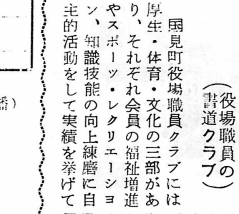 （役場職員の
書道クラブ）
国見町役場職員クラブには
厚生・体育・文化の三部があ
り、それぞれ会員の福祉増進
やスポーツ・レクリエーショ
ン、知識技能の向上練磨に自
主的活動をして実績を挙げて